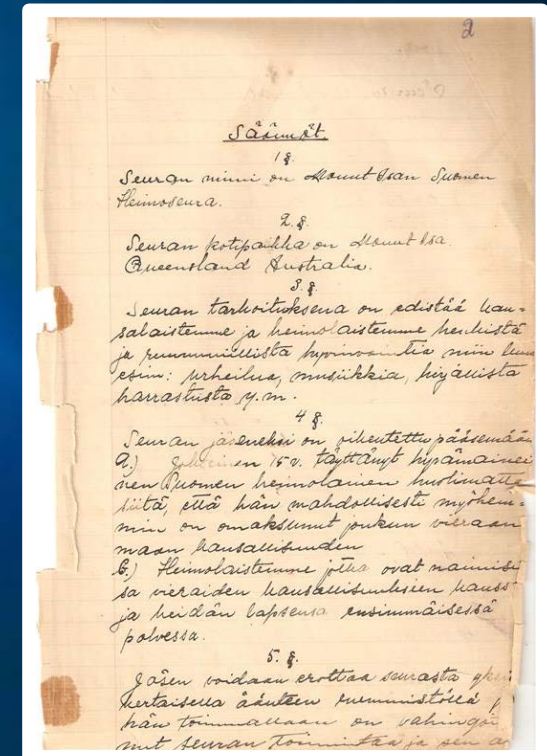 2
Säännöt.
1 §.
Seuran nimi on Mount Isan Suomen
Heimoseura.
2. §.
Seuran kotipaikka on Mount Isa.
Queensland Australia.
3. §.
Seuran tarkoituksena on edistää kan-
salaistemme ja heimolaistemme henkistä
ja ruumiillista hyvinvointia niin kuin
esim: urheilua, musiikkia, kirjallista
harrastusta y.m.
4 §.
Seuran jäseneksi on oikeutettu pääsemään
a.) 15 v. täyttänyt hyvämainei
nen Suomen heimolainen huolimatta
siitä, että hän mahdollisesti myöhem-
min on omaksunut jonkun vieraan
maan kansallisuuden
b.) Heimolaistemme jotka ovat naimisi
sa vieraiden kansallisuuksien kanss
ja heidän lapsensa ensimmäisessä
polvessa.
5. §.
Jäsen voidaan erottaa seurasta yksin
kertaisella äänten enemmistöllä
hän toiminnallaan on vahingoi
nut seuran toimintaa ja sen